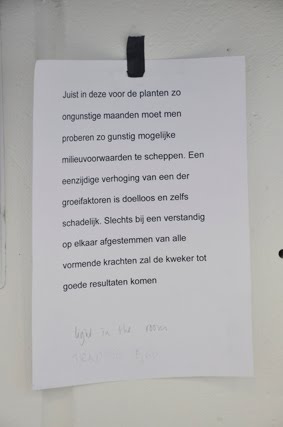 Juist in deze voor de planten zo
ongunstige maanden moet men
proberen zo gunstig mogelijke
milieuvoorwaarden te scheppen. Een
eenzijdige verhoging van een der
groeifaktoren is doelloos en zelfs
schadelijk. Slechts bij een verstandig
op elkaar afgestemmen van alle
vormende krachten zal de kweker tot
goede resultaten komen
light in the room